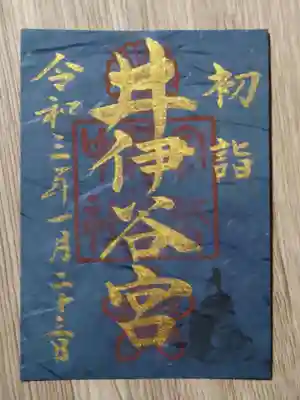 初詣
井伊谷宮
令和三年一月二十二日